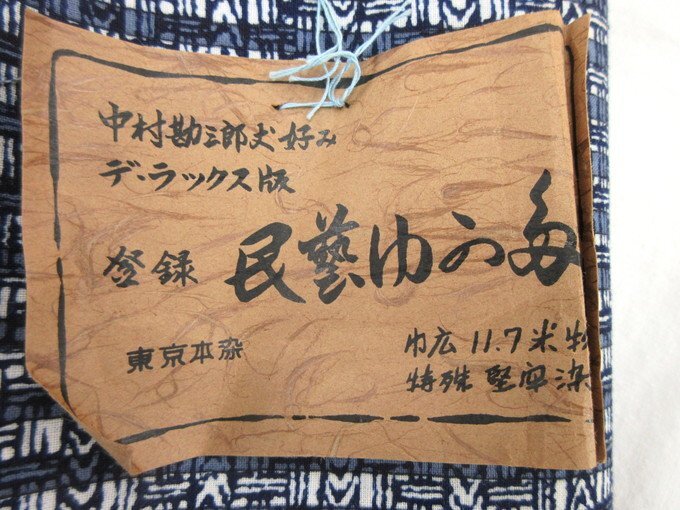 中村勘三郎丈好み
デ・ラックス版
登録 民藝ゆかた
東京本染
巾広 11.7米
特殊 堅牢染